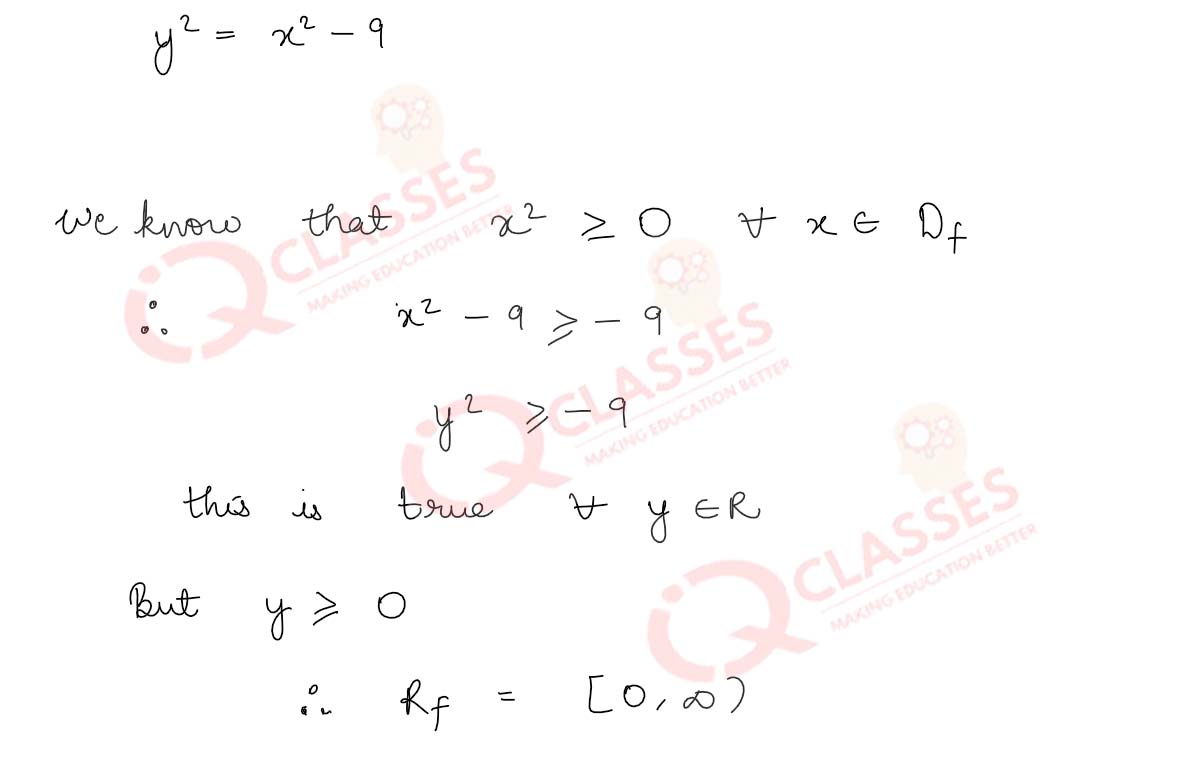 y² = x² - 9
we know that x² ≥ 0 ∀ x ∈ D_f
∴ x² - 9 ⩾ - 9
y² ⩾ - 9
this is true ∀ y ∈ R
But y ⩾ 0
∴ R_f = [0, ∞)
iQ CLASSES
MAKING EDUCATION BETTER
iQ CLASSES
MAKING EDUCATION BETTER
iQ CLASSES
MAKING EDUCATION BETTER